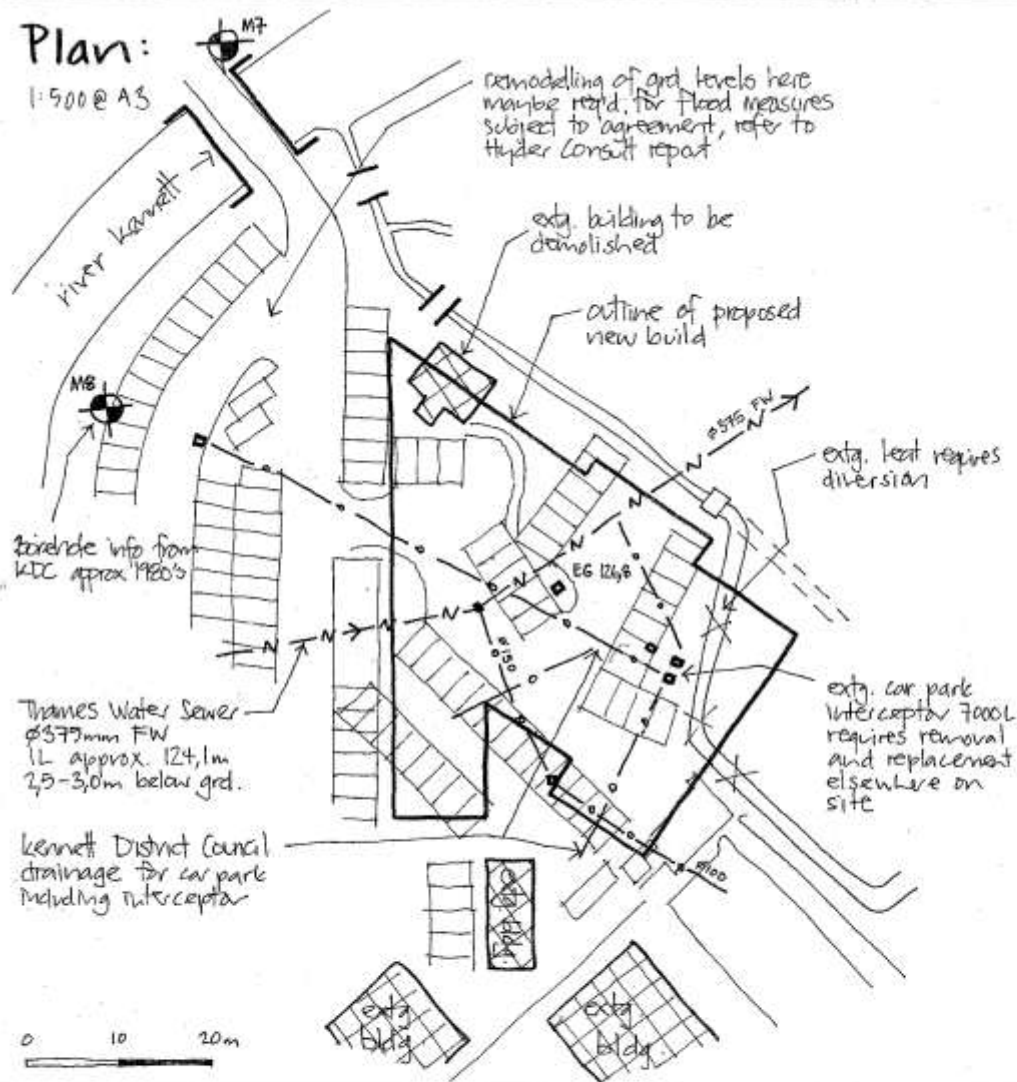 Plan:
1:500 @ A3
M7
remodelling of grd levels here
maybe req'd. for flood measures
subject to agreement, refer to
Hyder Consult report
river kennett
extg. building to be
demolished
outline of proposed
new build
M8
ø375 FW
N
N
extg. leat requires
diversion
Borehole info from
KDC approx 1980's
N
N
EG 126,8
N
N
N
N
ø150
Thames Water Sewer
ø375mm FW
IL approx. 124,1m
2,5-3,0m below grd.
extg. car park
interceptor 7000L
requires removal
and replacement
elsewhere on
site
kennett District Council
drainage for car park
including interceptor
ø100
extg
bldg
extg
bldg.
0 10 20m